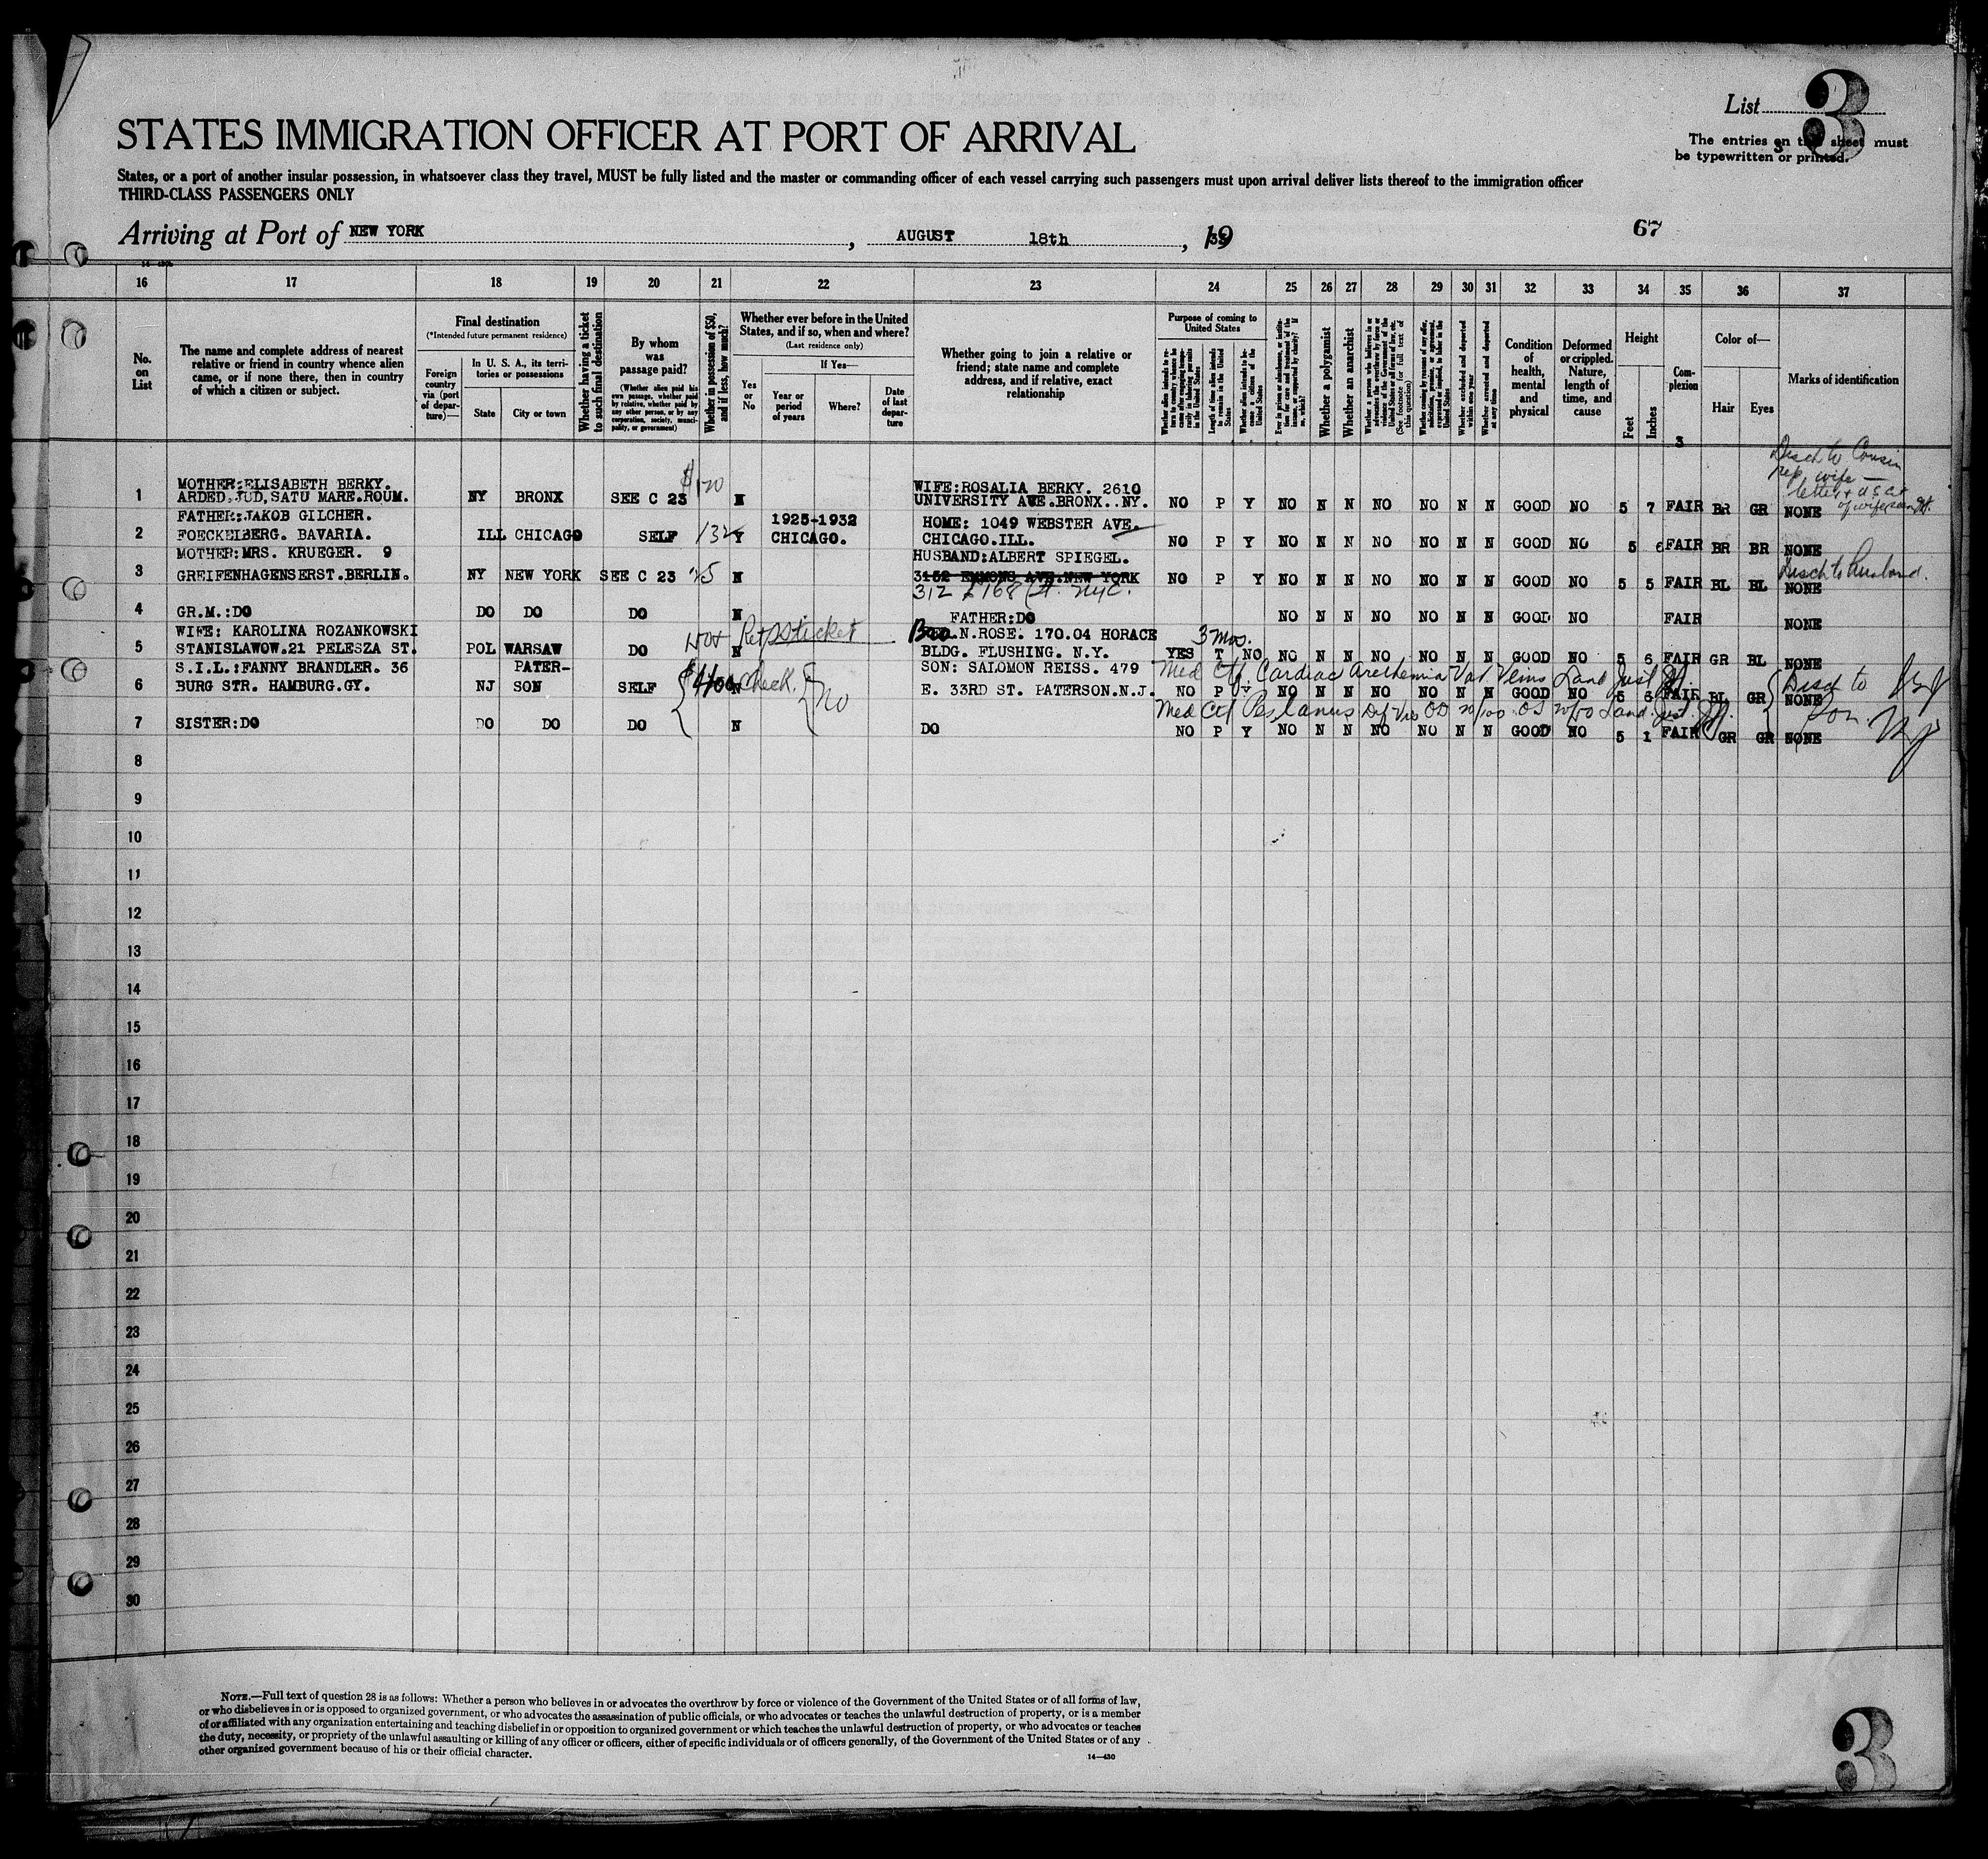 List 3
STATES IMMIGRATION OFFICER AT PORT OF ARRIVAL
The entries on this sheet must
be typewritten or printed.
States, or a port of another insular possession, in whatsoever class they travel, MUST be fully listed and the master or commanding officer of each vessel carrying such passengers must upon arrival deliver lists thereof to the immigration officer
THIRD-CLASS PASSENGERS ONLY
67
Arriving at Port of NEW YORK, AUGUST 18th, 19
16 17 18 19 20 21 22 23 24 25 26 27 28 29 30 31 32 33 34 35 36 37
No. on List
The name and complete address of nearest relative or friend in country whence alien came, or if none there, then in country of which a citizen or subject.
Final destination
(*Intended future permanent residence)
Foreign country via (port of departure)—
In U. S. A., its territories or possessions
State
City or town
Whether having a ticket to such final destination
By whom was passage paid?
(Whether alien paid his own passage, whether paid by relative, whether paid by any other person, or by any corporation, society, municipality, or government)
Whether in possession of $50, and if less, how much?
Whether ever before in the United States, and if so, when and where?
(Last residence only)
Yes or No
If Yes—
Year or period of years
Where?
Date of last departure
Whether going to join a relative or friend; state name and complete address, and if relative, exact relationship
Purpose of coming to United States
Length of time alien intends to remain in the United States
Whether alien intends to become a citizen of the United States
Whether a polygamist
Whether an anarchist
Whether excluded and deported within one year
Whether arrested and deported at any time
Condition of health, mental and physical
Deformed or crippled. Nature, length of time, and cause
Height
Feet
Inches
Complexion
Color of—
Hair
Eyes
Marks of identification
Disch to Cousin
wife —
1 MOTHER:ELISABETH BERKY.
ARDED.JUD.SATU MARE.ROUM. NY BRONX SEE C 23 N WIFE:ROSALIA BERKY. 2610
UNIVERSITY AVE.BRONX..NY. NO P Y NO N N NO NO N N GOOD NO 5 7 FAIR BR GR NONE
2 FATHER:JAKOB GILCHER.
FOECKELBERG. BAVARIA. ILL CHICAGO SELF Y 1925-1932
CHICAGO. HOME: 1049 WEBSTER AVE.
CHICAGO.ILL. NO P Y NO N N NO NO N N GOOD NO 5 6 FAIR BR BR NONE
3 MOTHER:MRS. KRUEGER. 9
GREIFENHAGENSERST.BERLIN. NY NEW YORK SEE C 23 N HUSBAND:ALBERT SPIEGEL.
3152 EMMONS AVE.NEW YORK NO P Y NO N N NO NO N N GOOD NO 5 5 FAIR BL BL NONE
Disch to husband.
4 GR.M.:DO DO DO DO N FATHER:DO NO N N NO NO N N GOOD NO FAIR NONE
5 WIFE: KAROLINA ROZANKOWSKI
STANISLAWOW.21 PELESZA ST. POL WARSAW DO N N.ROSE. 170.04 HORACE
BLDG. FLUSHING. N.Y. 3 mos. YES T NO NO N N NO NO N N GOOD NO 5 6 FAIR GR BL NONE
6 S.I.L.:FANNY BRANDLER. 36
BURG STR. HAMBURG.GY. NJ PATER-
SON SELF check. no SON: SALOMON REISS. 479
E. 33RD ST. PATERSON.N.J. NO P Y NO N N NO NO N N GOOD NO 5 6 FAIR BL GR NONE
Disch to
7 SISTER:DO DO DO DO N DO NO P Y NO N N NO NO N N GOOD NO 5 1 FAIR GR GR NONE
8
9
10
11
12
13
14
15
16
17
18
19
20
21
22
23
24
25
26
27
28
29
30
NOTE.—Full text of question 28 is as follows: Whether a person who believes in or advocates the overthrow by force or violence of the Government of the United States or of all forms of law,
or who disbelieves in or is opposed to organized government, or who advocates the assassination of public officials, or who advocates or teaches the unlawful destruction of property, or is a member
of or affiliated with any organization entertaining and teaching disbelief in or opposition to organized government or which teaches the unlawful destruction of property, or who advocates or teaches
the duty, necessity, or propriety of the unlawful assaulting or killing of any officer or officers, either of specific individuals or of officers generally, of the Government of the United States or of any
other organized government because of his or their official character.
14—430
3